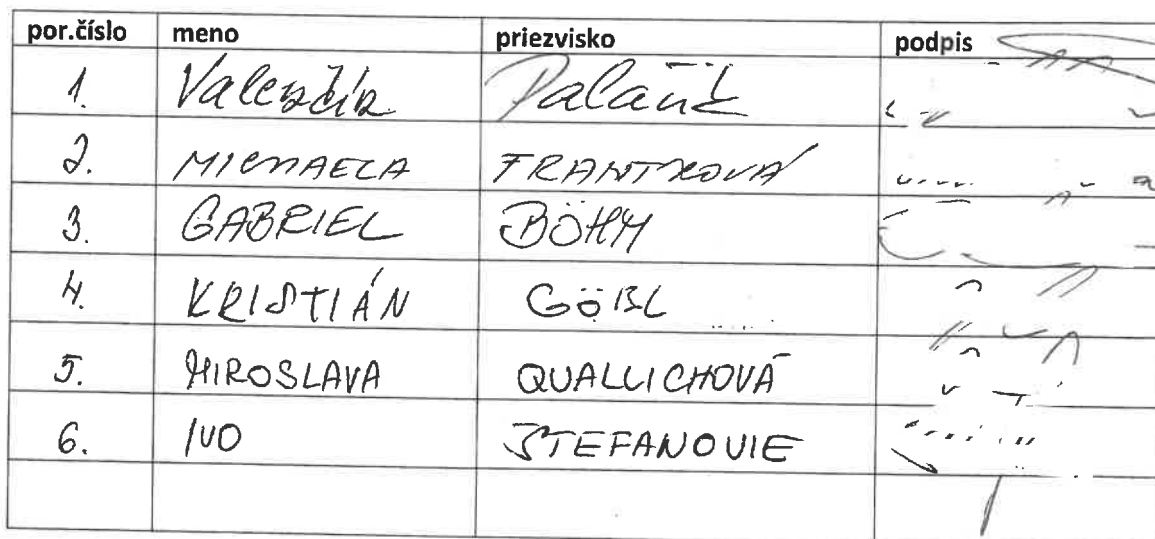 por.číslo meno priezvisko podpis
1. Valenčík Palaník
2. MICHAELA FRANTKOVÁ
3. GABRIEL BÖHM
4. KRISTIÁN GÖBL
5. MIROSLAVA QUALLICHOVÁ
6. IVO STEFANOVIE